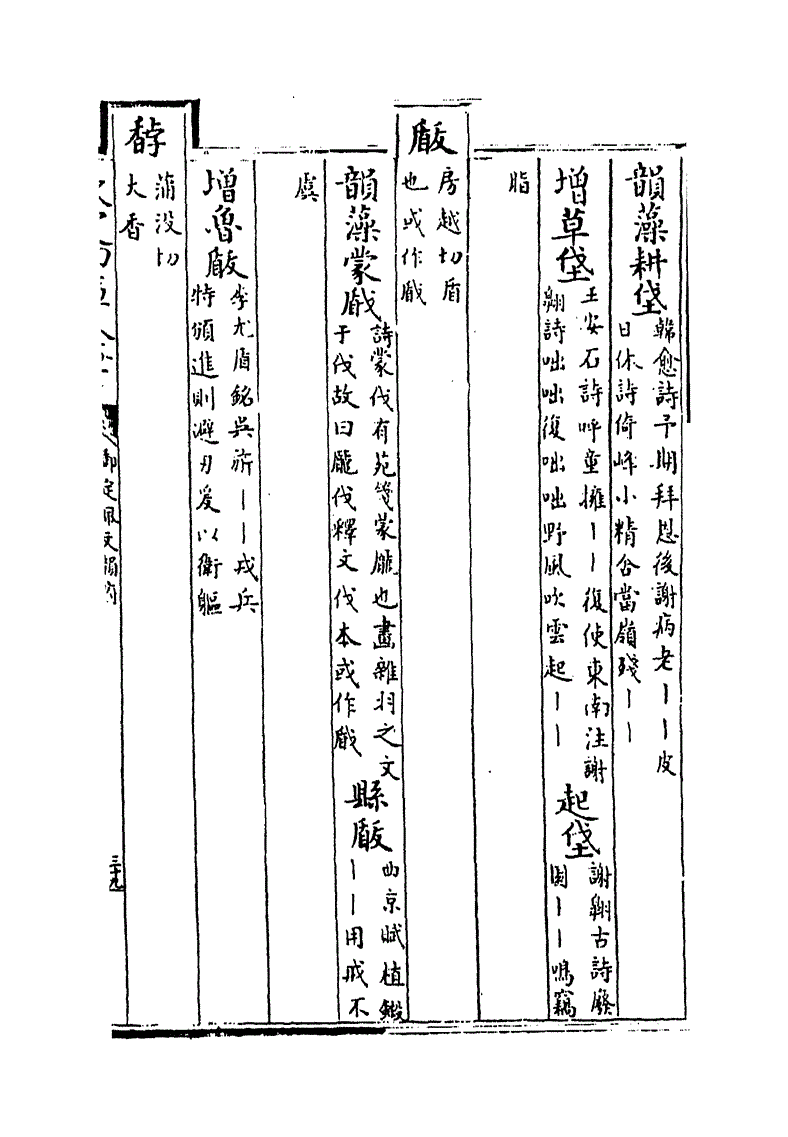 韻藻耕垡韓愈詩予期拜恩後謝病老丨丨皮
日休詩倚峰小精舍當嶺殘丨丨
增草垡王安石詩呼童擁丨丨復使東南注謝
翱詩咄咄復咄咄野風吹雲起丨丨
起垡謝翱古詩廢
圃丨丨鳴竊
脂
瞂房越切盾
也或作㕹
韻藻蒙㕹詩蒙伐有苑箋蒙厖也畫雜羽之文
于伐故曰厖伐釋文伐本或作㕹
縣瞂西京賦植鎩
丨丨用戒不
虞
增魯瞂李尤盾銘吳旂丨丨戎兵
特須進則避刃爰以衛軀
馞蒲没切
大香
御定佩文韻府
三十九